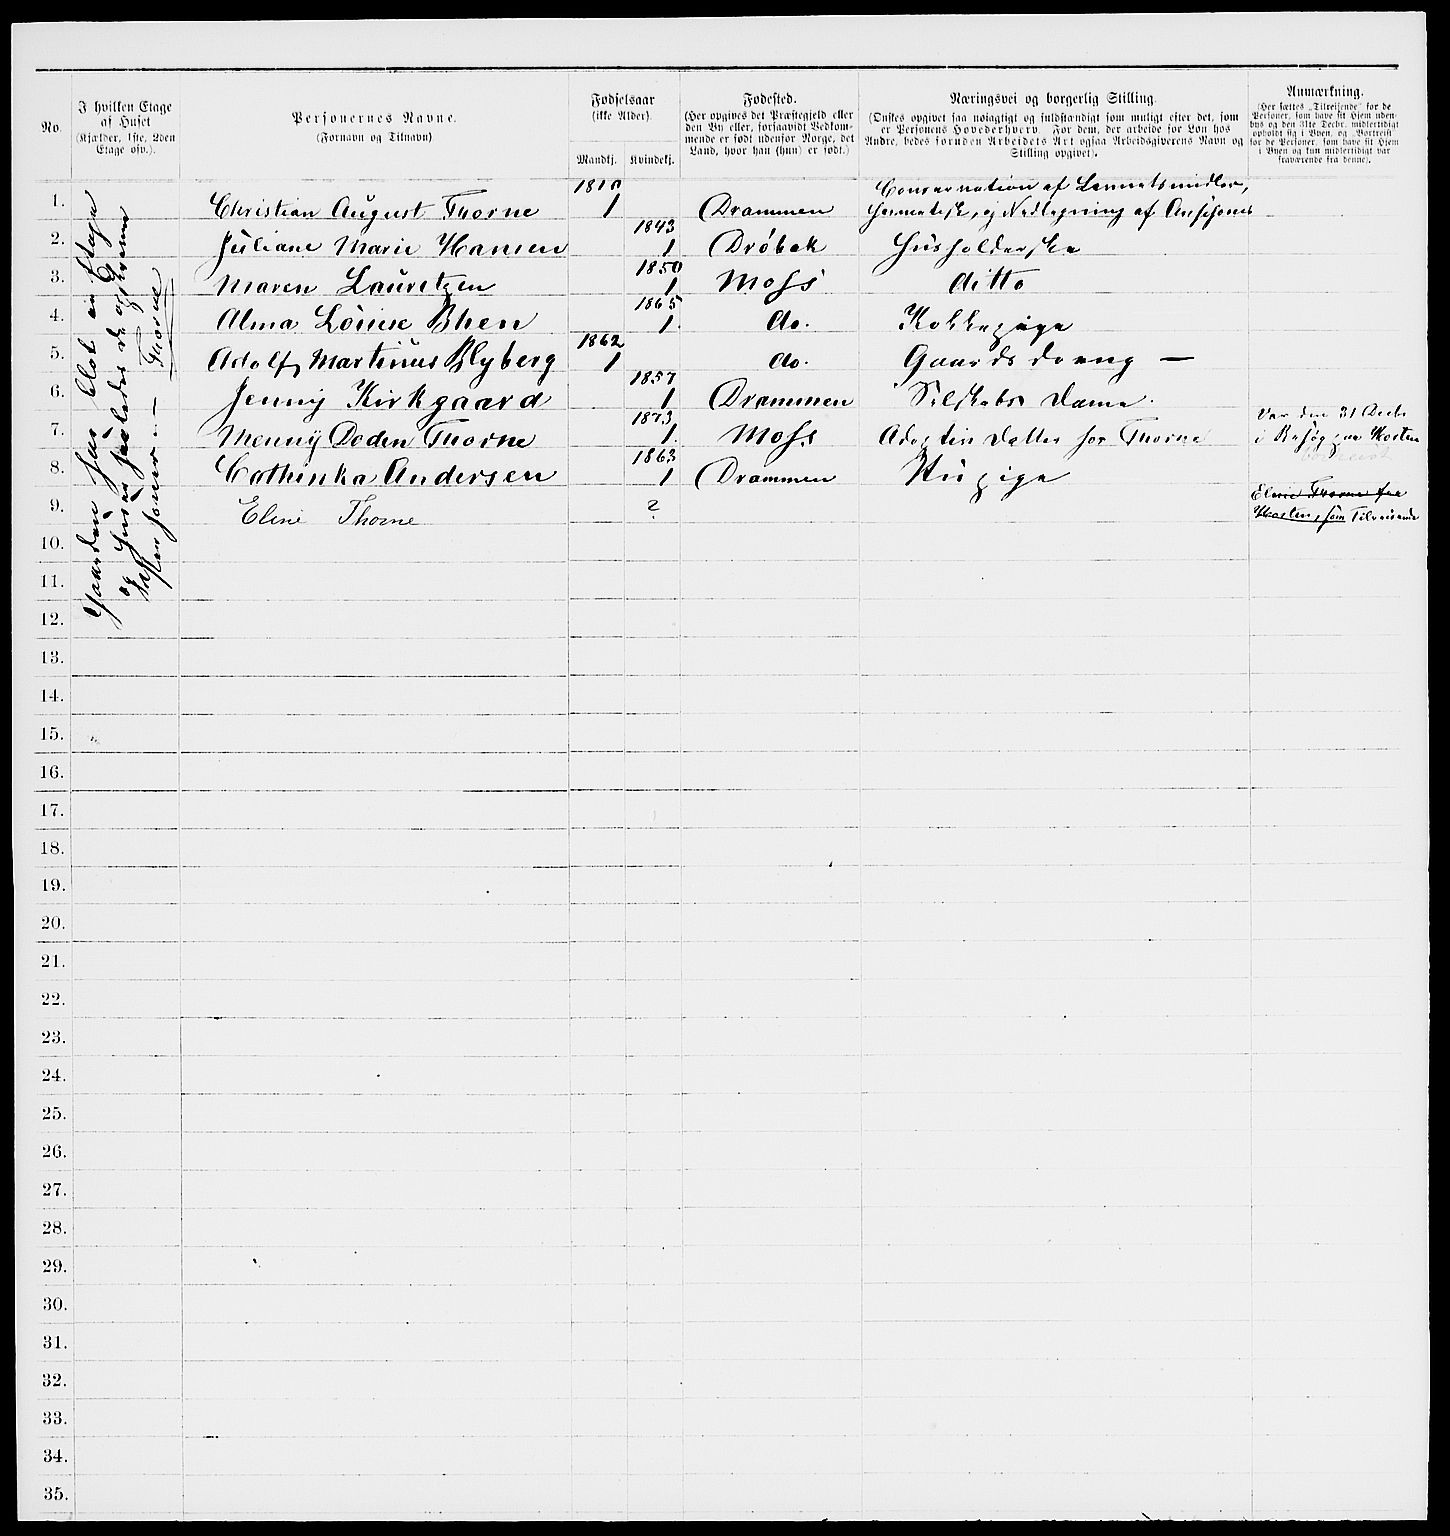 No.
I hvilken Etage
af Huset
(Kjælder, 1ste, 2den
Etage osv.).
Personernes Navne.
(Fornavn og Tilnavn)
Fødselsaar
(ikke Alder).
Mandkj.
Kvindekj.
Fødested.
(Her opgives det Præstegjeld eller
den By eller, forsaavidt Vedkom-
mende er født udenfor Norge, det
Land, hvor han (hun) er født.)
Næringsvei og borgerlig Stilling.
(Ønskes opgivet saa nøiagtigt og fuldstændigt som muligt efter det, som
er Personens Hovederhverv. For dem, der arbeide for Løn hos
Andre, bedes foruden Arbeidets Art ogsaa Arbeidsgiverens Navn og
Stilling opgivet).
Anmærkning.
(Her sættes „Tilreisende" for de
Personer, som have sit Hjem uden-
bys og den 31te Decbr. midlertidigt
opholdt sig i Byen, og „Bortreist"
for de Personer, som have sit Hjem
i Byen og kun midlertidigt var
fraværende fra denne).
Gaarden har blot en Etage
og huser saaledes
Thorne
1. Christian August Thorne 1810 1 Drammen Conservation af Levnetsmidler,
hermetisk, og Nedlægning af Anschovis
2. Juliane Marie Hansen 1843 1 Drøbak Husholderske
3. Maren Lauritzen 1850 1 Moss ditto
4. Alma Lovise Bhen 1865 1. do. Kokkepige
5. Adolf Martinus Blyberg 1862 1 do. Gaardsdreng —
6. Jenny Kirkgaard 1857 1 Drammen Selskabs Dame.
7. Menny Doden Thorne 1873 1. Moss Adoptiv Datter for Thorne Var den 31 Decbr
i Besøg paa Horten
bortreist
8. Cathinka Andersen 1863 1 Drammen Stuepige
9. Eline Thorne ? Eline Thorne fra
Horten, som Tilreisende
10.
11.
12.
13.
14.
15.
16.
17.
18.
19.
20.
21.
22.
23.
24.
25.
26.
27.
28.
29.
30.
31.
32.
33.
34.
35.